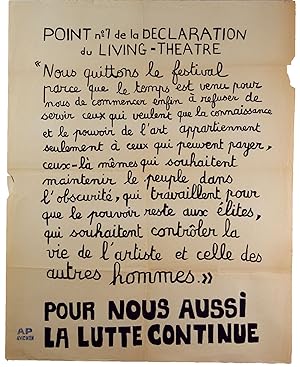 POINT n°7 de la DECLARATION
du LIVING-THEATRE
"Nous quittons le festival
parce que le temps est venu pour
nous de commencer enfin à refuser de
servir ceux qui veulent que la connaissance
et le pouvoir de l'art appartiennent
seulement à ceux qui peuvent payer,
ceux-là mêmes qui souhaitent
maintenir le peuple dans
l'obscurité, qui travaillent pour
que le pouvoir reste aux élites,
qui souhaitent contrôler la
vie de l'artiste et celle des
autres hommes."
POUR NOUS AUSSI
LA LUTTE CONTINUE
AP